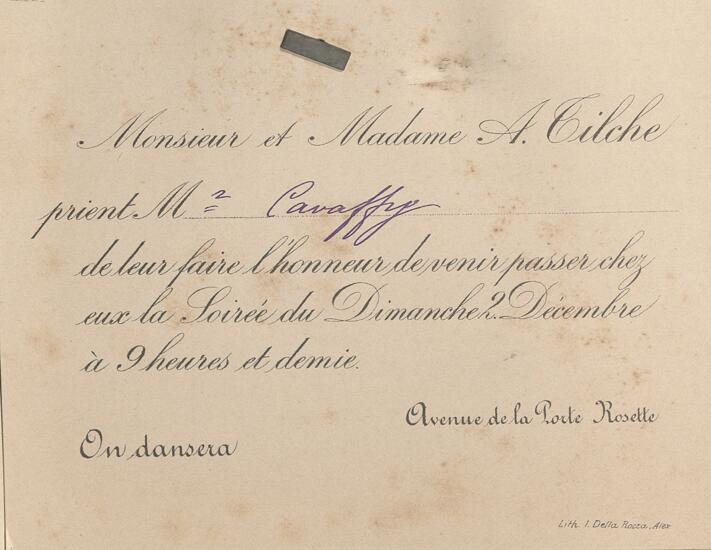 Monsieur et Madame A. Tilche
prient Mr Cavaffy
de leur faire l'honneur de venir passer chez
eux la Soirée du Dimanche 2. Décembre
à 9 heures et demie.
Avenue de la Porte Rosette
On dansera
Lith. I. Della Rocca, Alex